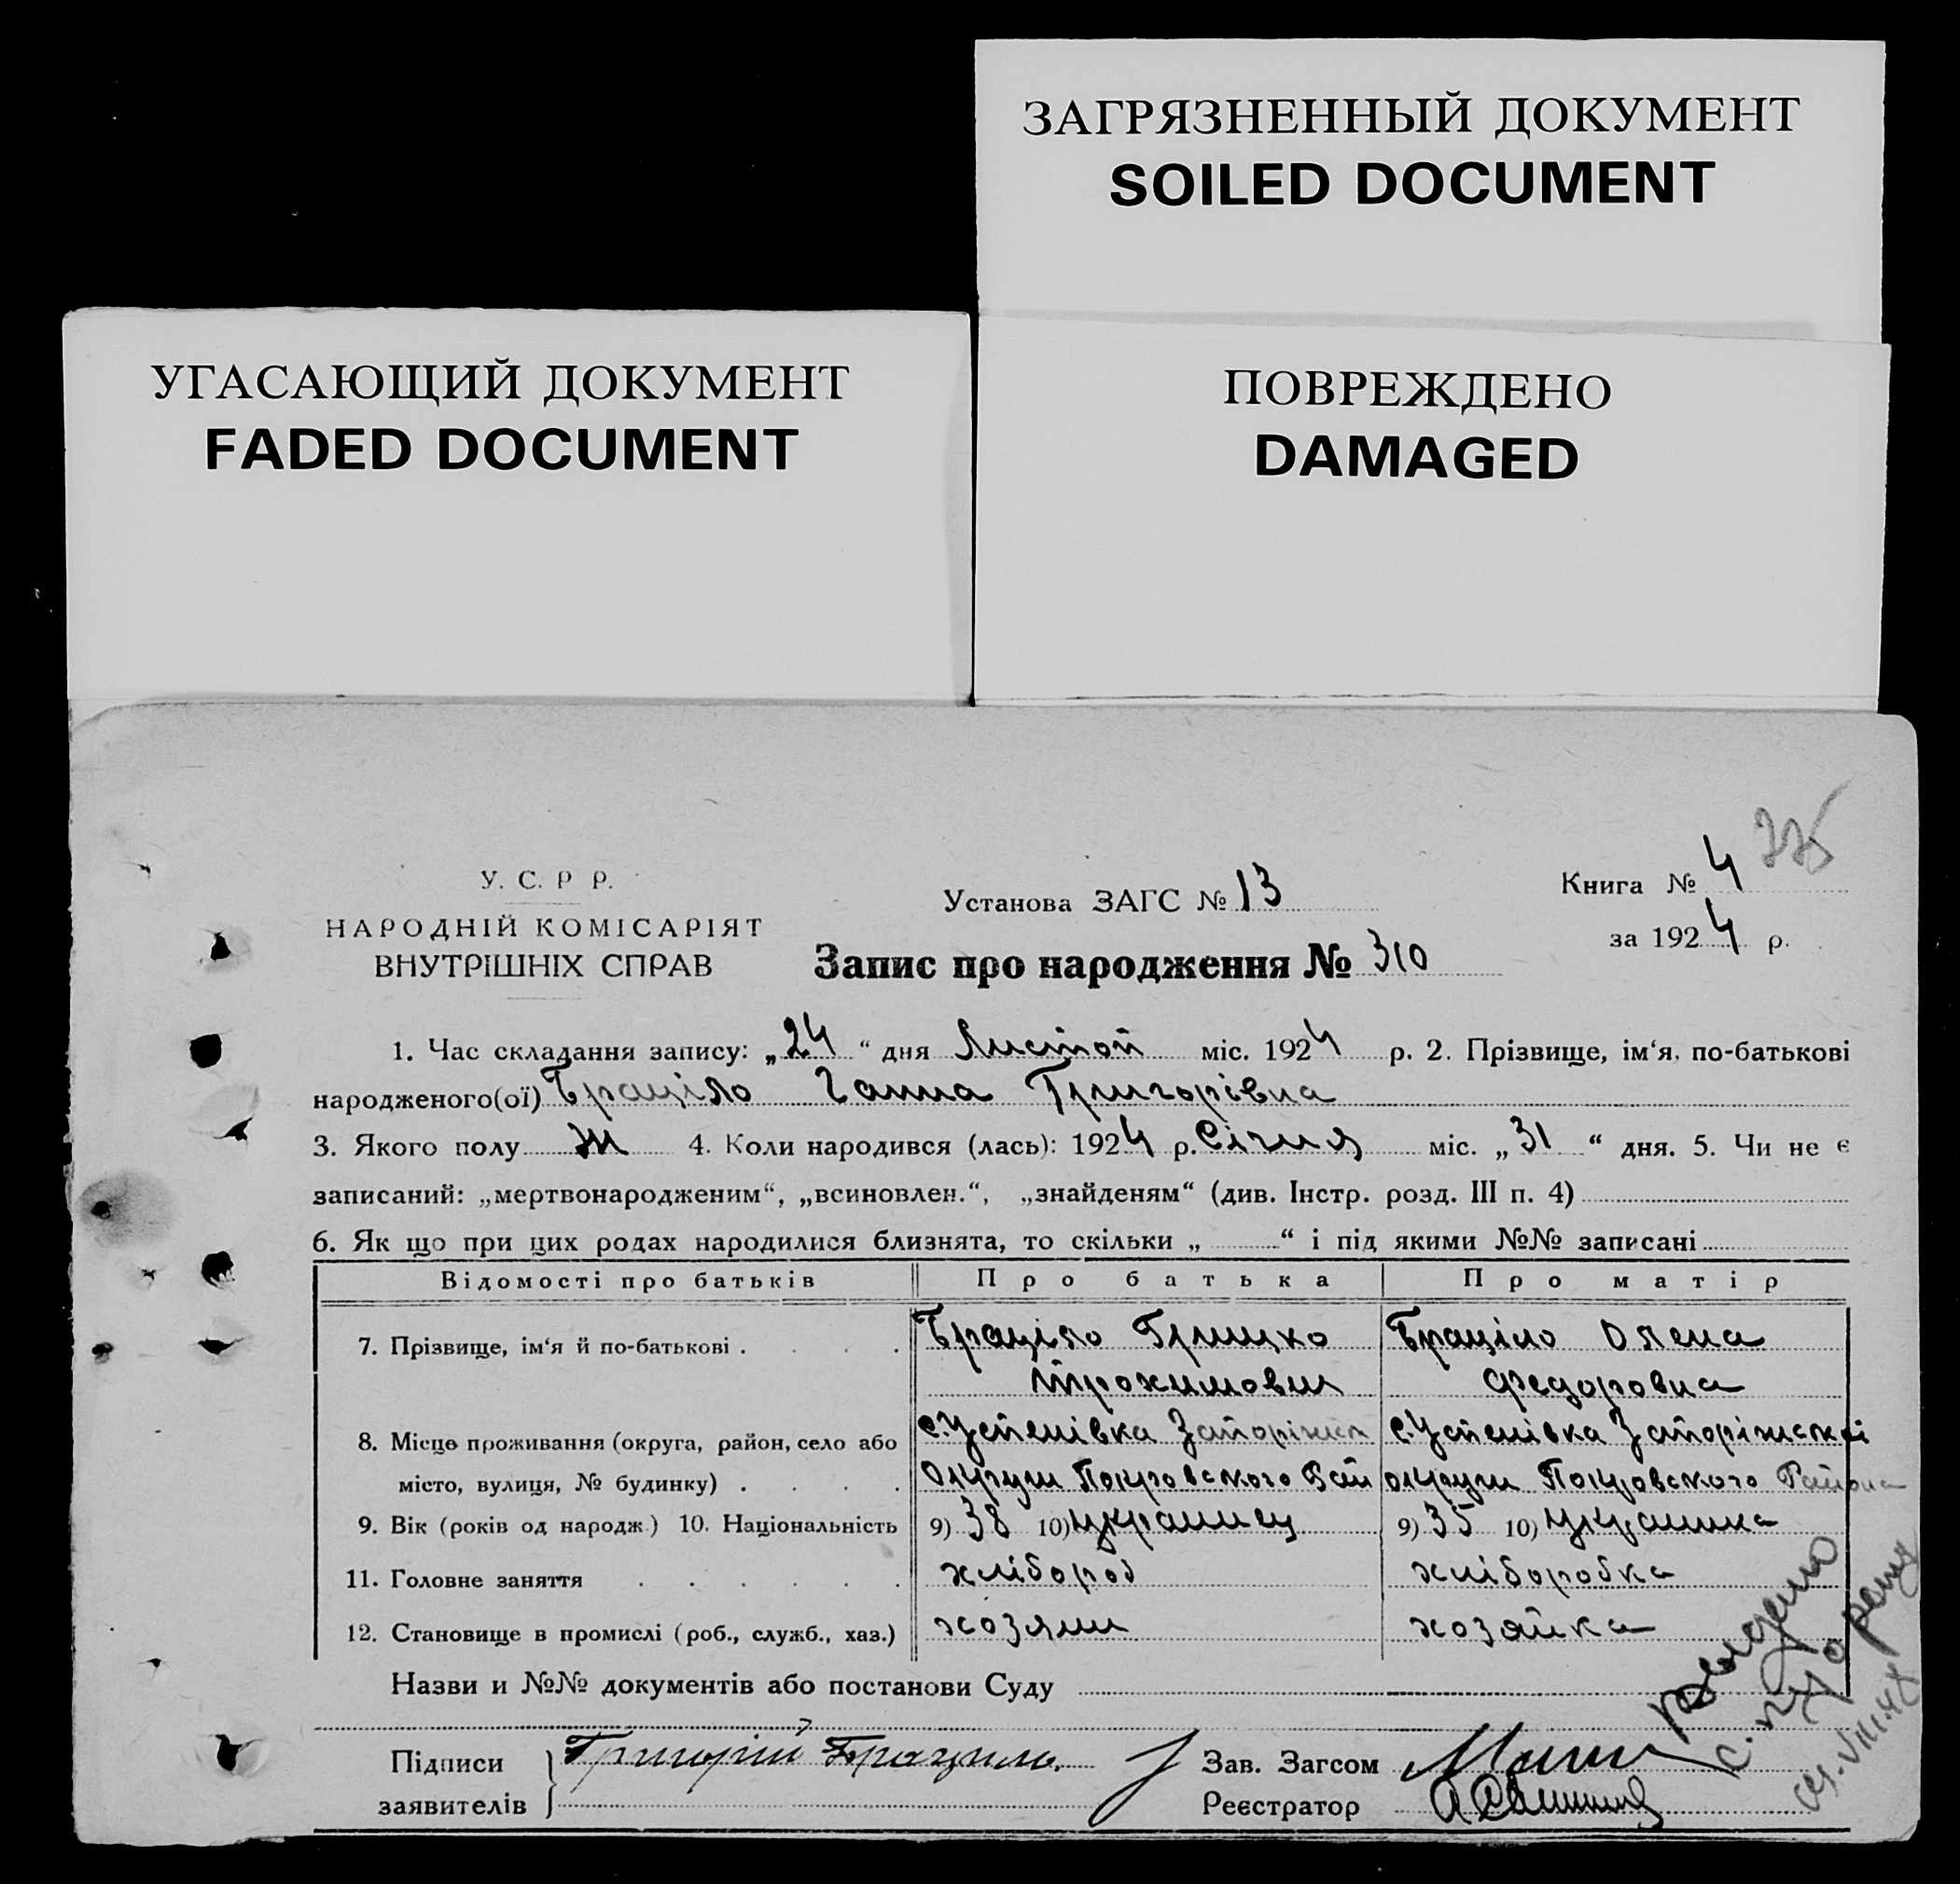 ЗАГРЯЗНЕННЫЙ ДОКУМЕНТ
SOILED DOCUMENT
УГАСАЮЩИЙ ДОКУМЕНТ
FADED DOCUMENT
ПОВРЕЖДЕНО
DAMAGED
У. С. Р Р.
НАРОДНІЙ КОМІСАРІЯТ
ВНУТРІШНІХ СПРАВ
Установа ЗАГС № 13
Запис про народження № 310
Книга № 4
за 1924 р.
1. Час складання запису: „24“ дня Листоп міс. 1924 р. 2. Прізвище, ім‘я, по-батькові
народженого(ої) Браціло Ганна Григорівна
3. Якого полу Ж 4. Коли народився (лась): 1924 р. Січня міс. „31“ дня. 5. Чи не є
записаний: „мертвонародженим“, „всиновлен.“, „знайденям“ (див. Інстр. розд. III п. 4)
6. Як що при цих родах народилися близнята, то скільки „ “ і під якими №№ записані
Відомості про батьків Про батька Про матір
7. Прізвище, ім‘я й по-батькові . . . . Браціло Грицко Браціло Олена
Трохимович Федоровна
8. Місце проживання (округа, район, село або с. Успенівка Запоріжск с. Успенівка Запоріжской
місто, вулиця, № будинку) . . . . округи Покровского Рай округи Покровского Района
9. Вік (років од народж.) 10. Національність 9) 38 10) украинец 9) 35 10) украинка
11. Головне заняття . . . . . . хлібороб хліборобка
12. Становище в промислі (роб., служб., хаз.) хозяин хозяйка
Назви и №№ документів або постанови Суду
Підписи Григорій Брацило. Зав. Загсом
заявителів Реєстратор